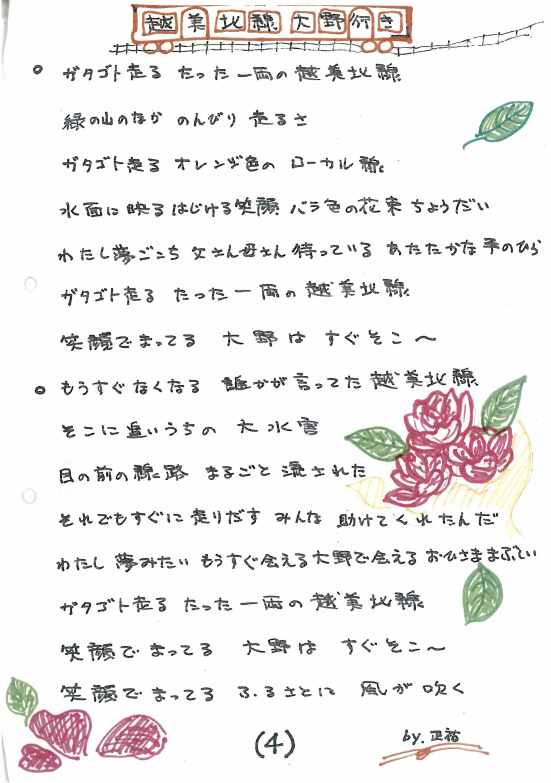 越美北線大野行き
○ ガタゴト走る たった一両の 越美北線
緑の山のなか のんびり 走るさ
ガタゴト走る オレンヂ色の ローカル線
水面に映る はじける笑顔 バラ色の花束 ちょうだい
わたし夢ごこち 父さん母さん 待っている あたたかな 手のひら
ガタゴト走る たった一両の 越美北線
笑顔でまってる 大野は すぐそこ〜
○ もうすぐなくなる 誰かが 言ってた 越美北線
そこに追いうちの 大水害
目の前の線路 まるごと 流された
それでもすぐに 走りだす みんな 助けてくれたんだ
わたし 夢みたい もうすぐ会える 大野で会える おひさままぶしい
ガタゴト走る たった一両の 越美北線
笑顔で まってる 大野は すぐそこ〜
笑顔で まってる ふるさとに 風が吹く
(4)
by.正裕